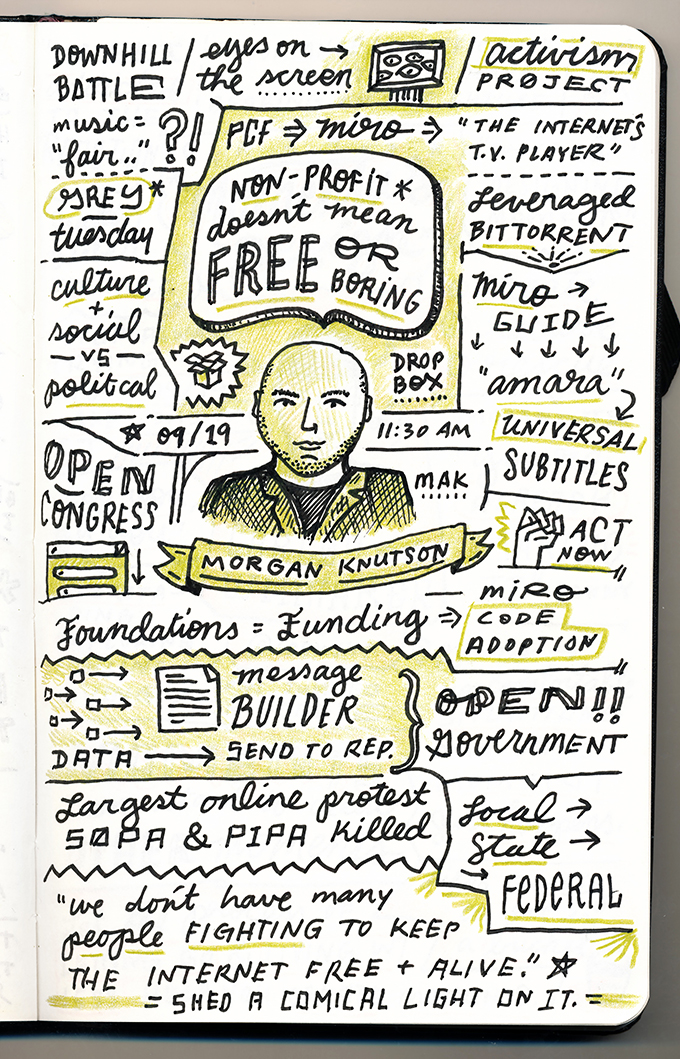 DOWNHILL
BATTLE
eyes on →
the screen
activism
PROJECT
music =
"fair.." ?!
PCF ⇒ miro ⇒ "THE INTERNET'S
T.V. PLAYER"
GREY*
tuesday
NON-PROFIT *
doesn't mean
FREE OR
BORING
Leveraged
BITTORRENT
culture
+
social
— VS —
politcal
miro →
GUIDE
↓ ↓ ↓ ↓ ↓
"amara"
UNIVERSAL
SUBTITLES
DROP
BOX
☆ 09/19
11:30 AM
OPEN
CONGRESS
MAK
ACT
NOW
MORGAN KNUTSON
Foundations = Funding ⇒
— miro
CODE
ADOPTION
message
BUILDER
DATA → SEND TO REP.
OPEN!!
Government
Largest online protest
SOPA & PIPA Killed
Local →
State →
→ FEDERAL
"we don't have many
people FIGHTING TO KEEP
THE INTERNET FREE + ALIVE." ☆
= SHED A COMICAL LIGHT ON IT. =